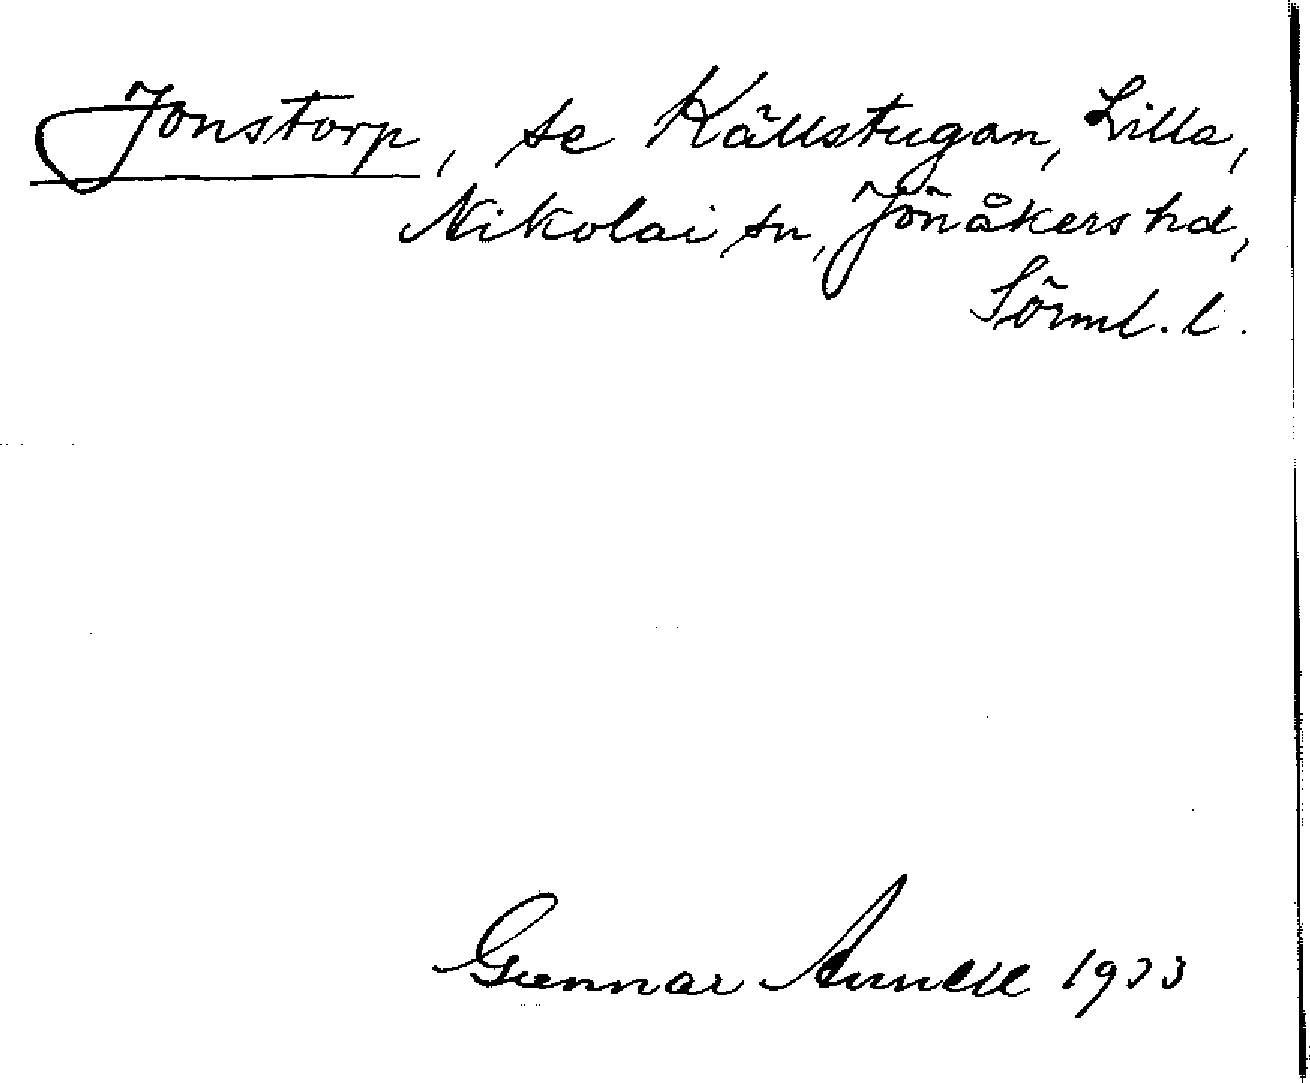 Jonstorp, se Källstugan, Lilla,
Nikolai sn, Jönåkers hd,
Sörml. l.
Gunnar 1933